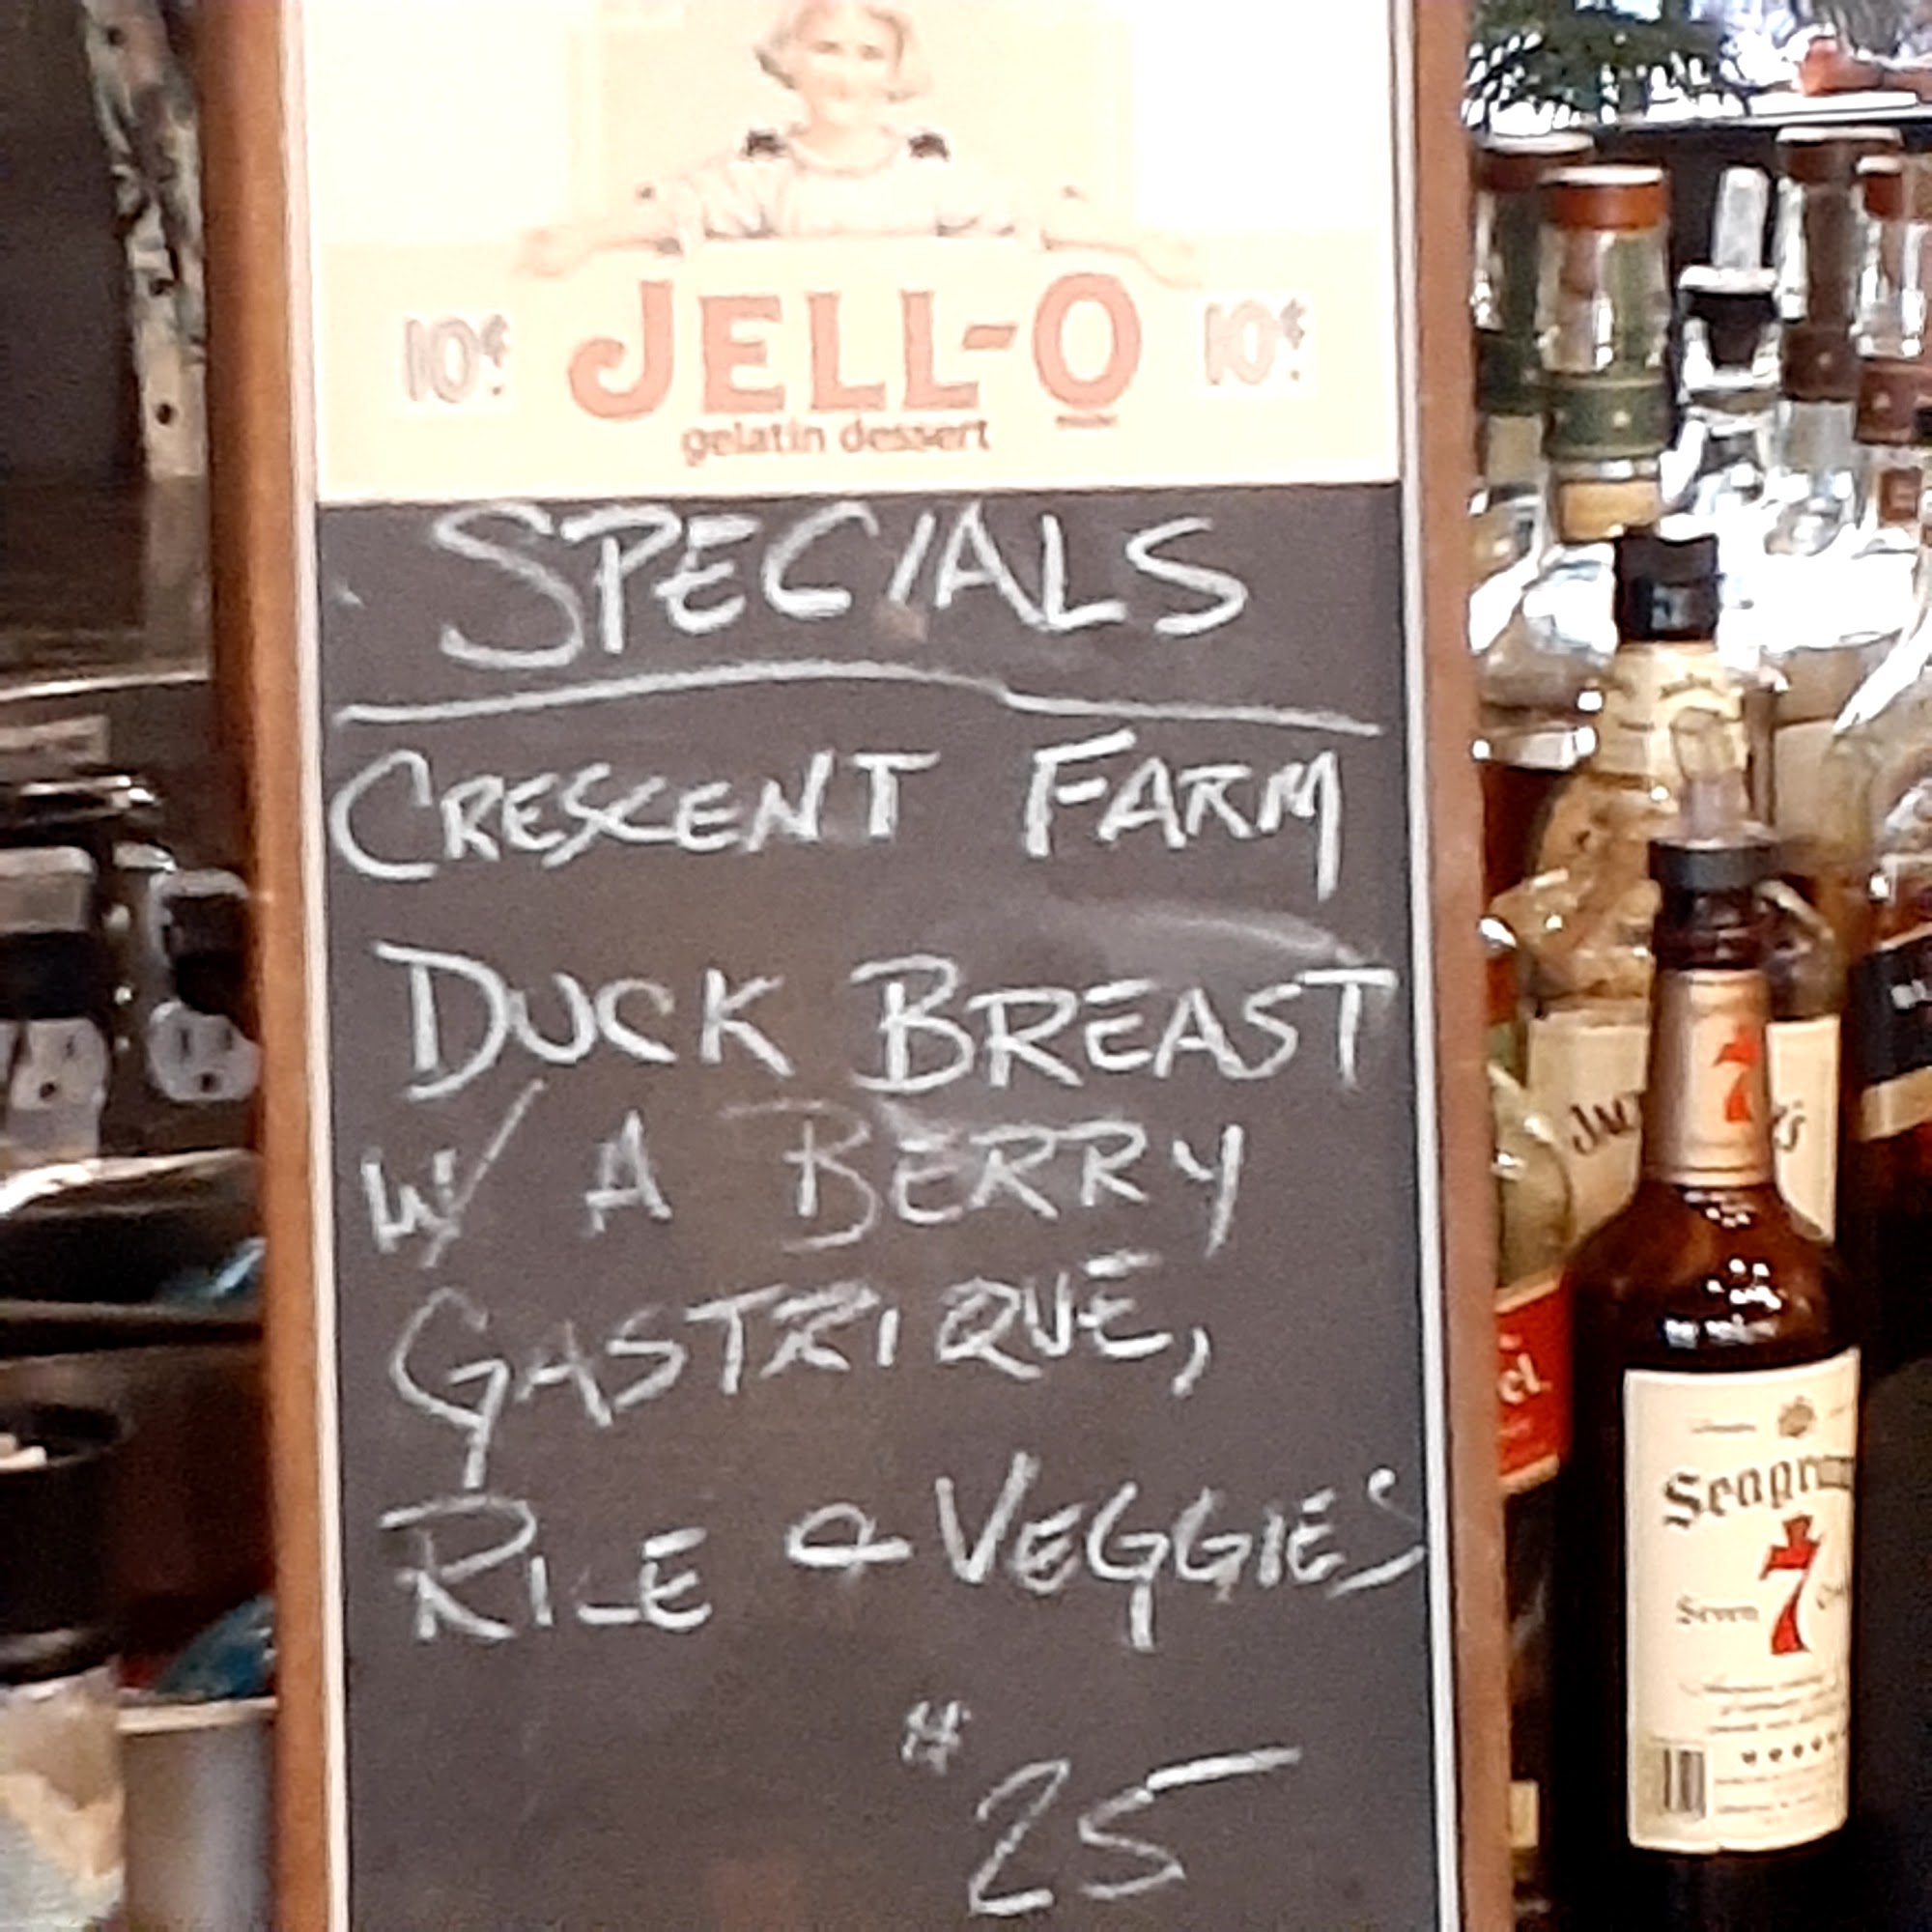 10¢ JELL-O 10¢
gelatin dessert
SPECIALS
CRESCENT FARM
DUCK BREAST
W/ A BERRY
GASTRIQUE,
RICE & VEGGIES
$25
7
Seagram's
Seven 7